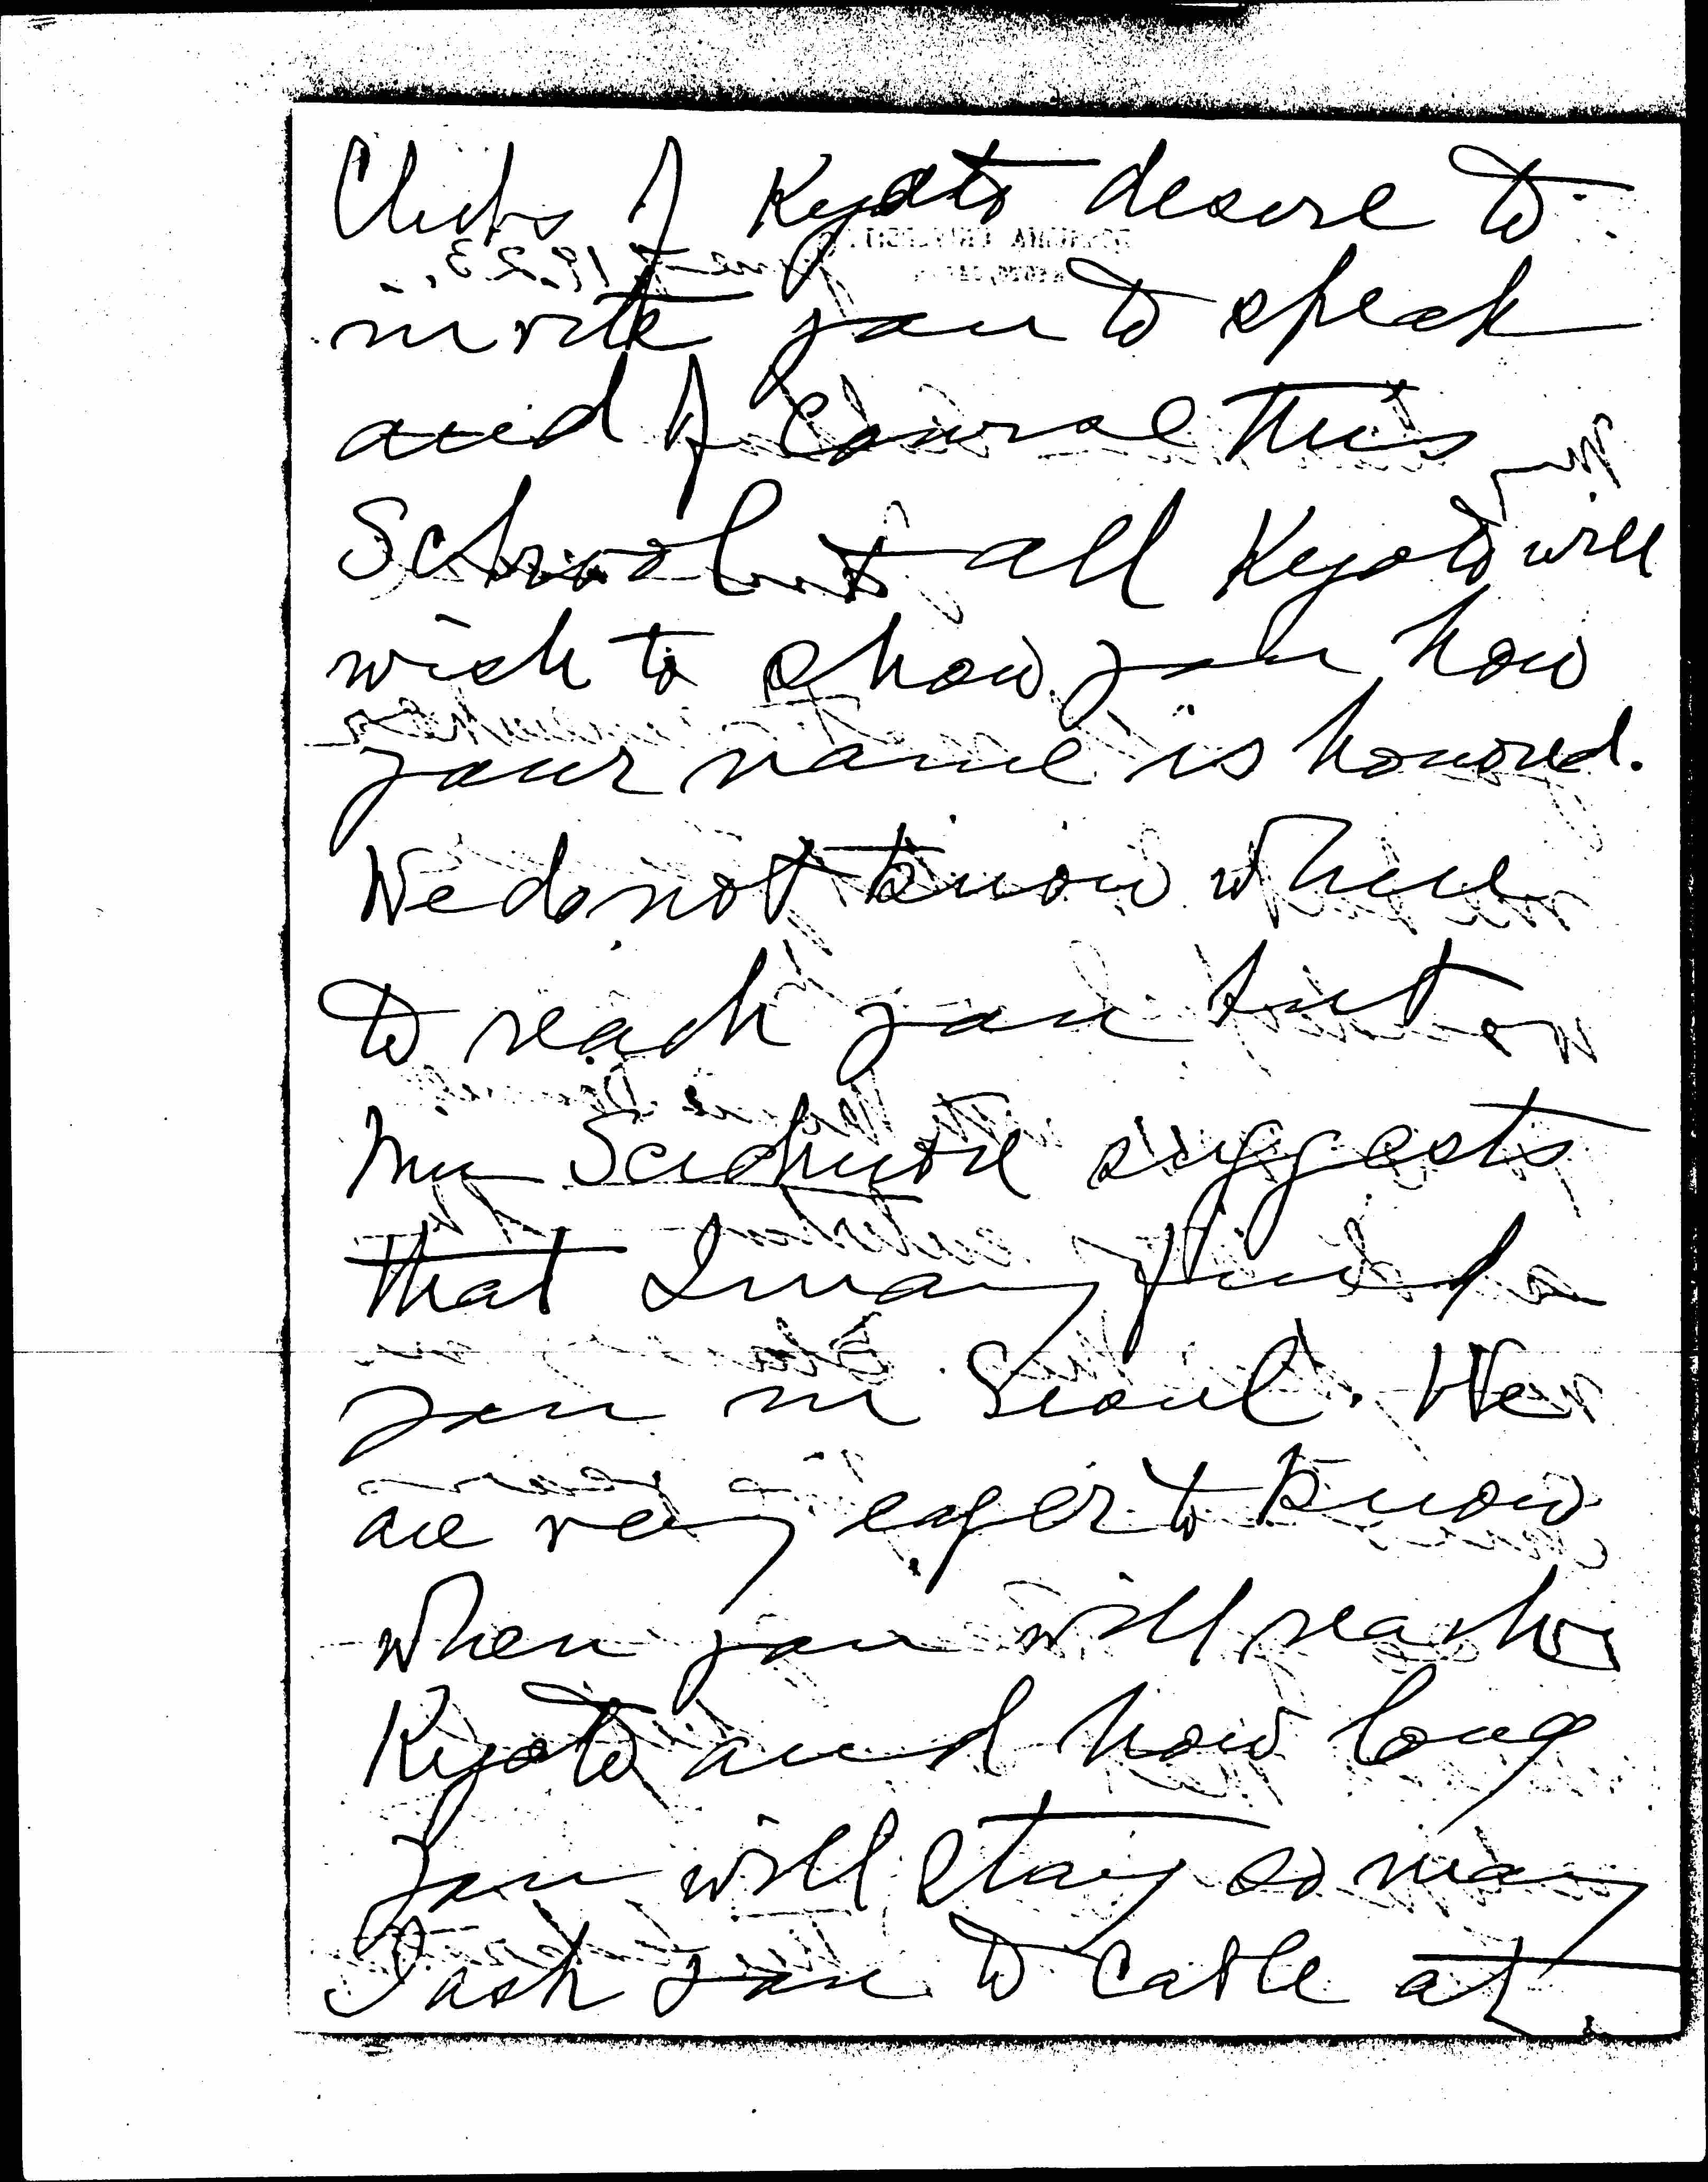 Clubs of Kyoto desire to
invite you to speak
and of course this
School & all Kyoto will
wish to show you how
your name is honored.
We do not know where
to reach you but
Mr
suggests
that I may find
you in Seoul. We
are very eager to know
when you will reach
Kyoto and how long
you will stay so may
I ask you to cable at